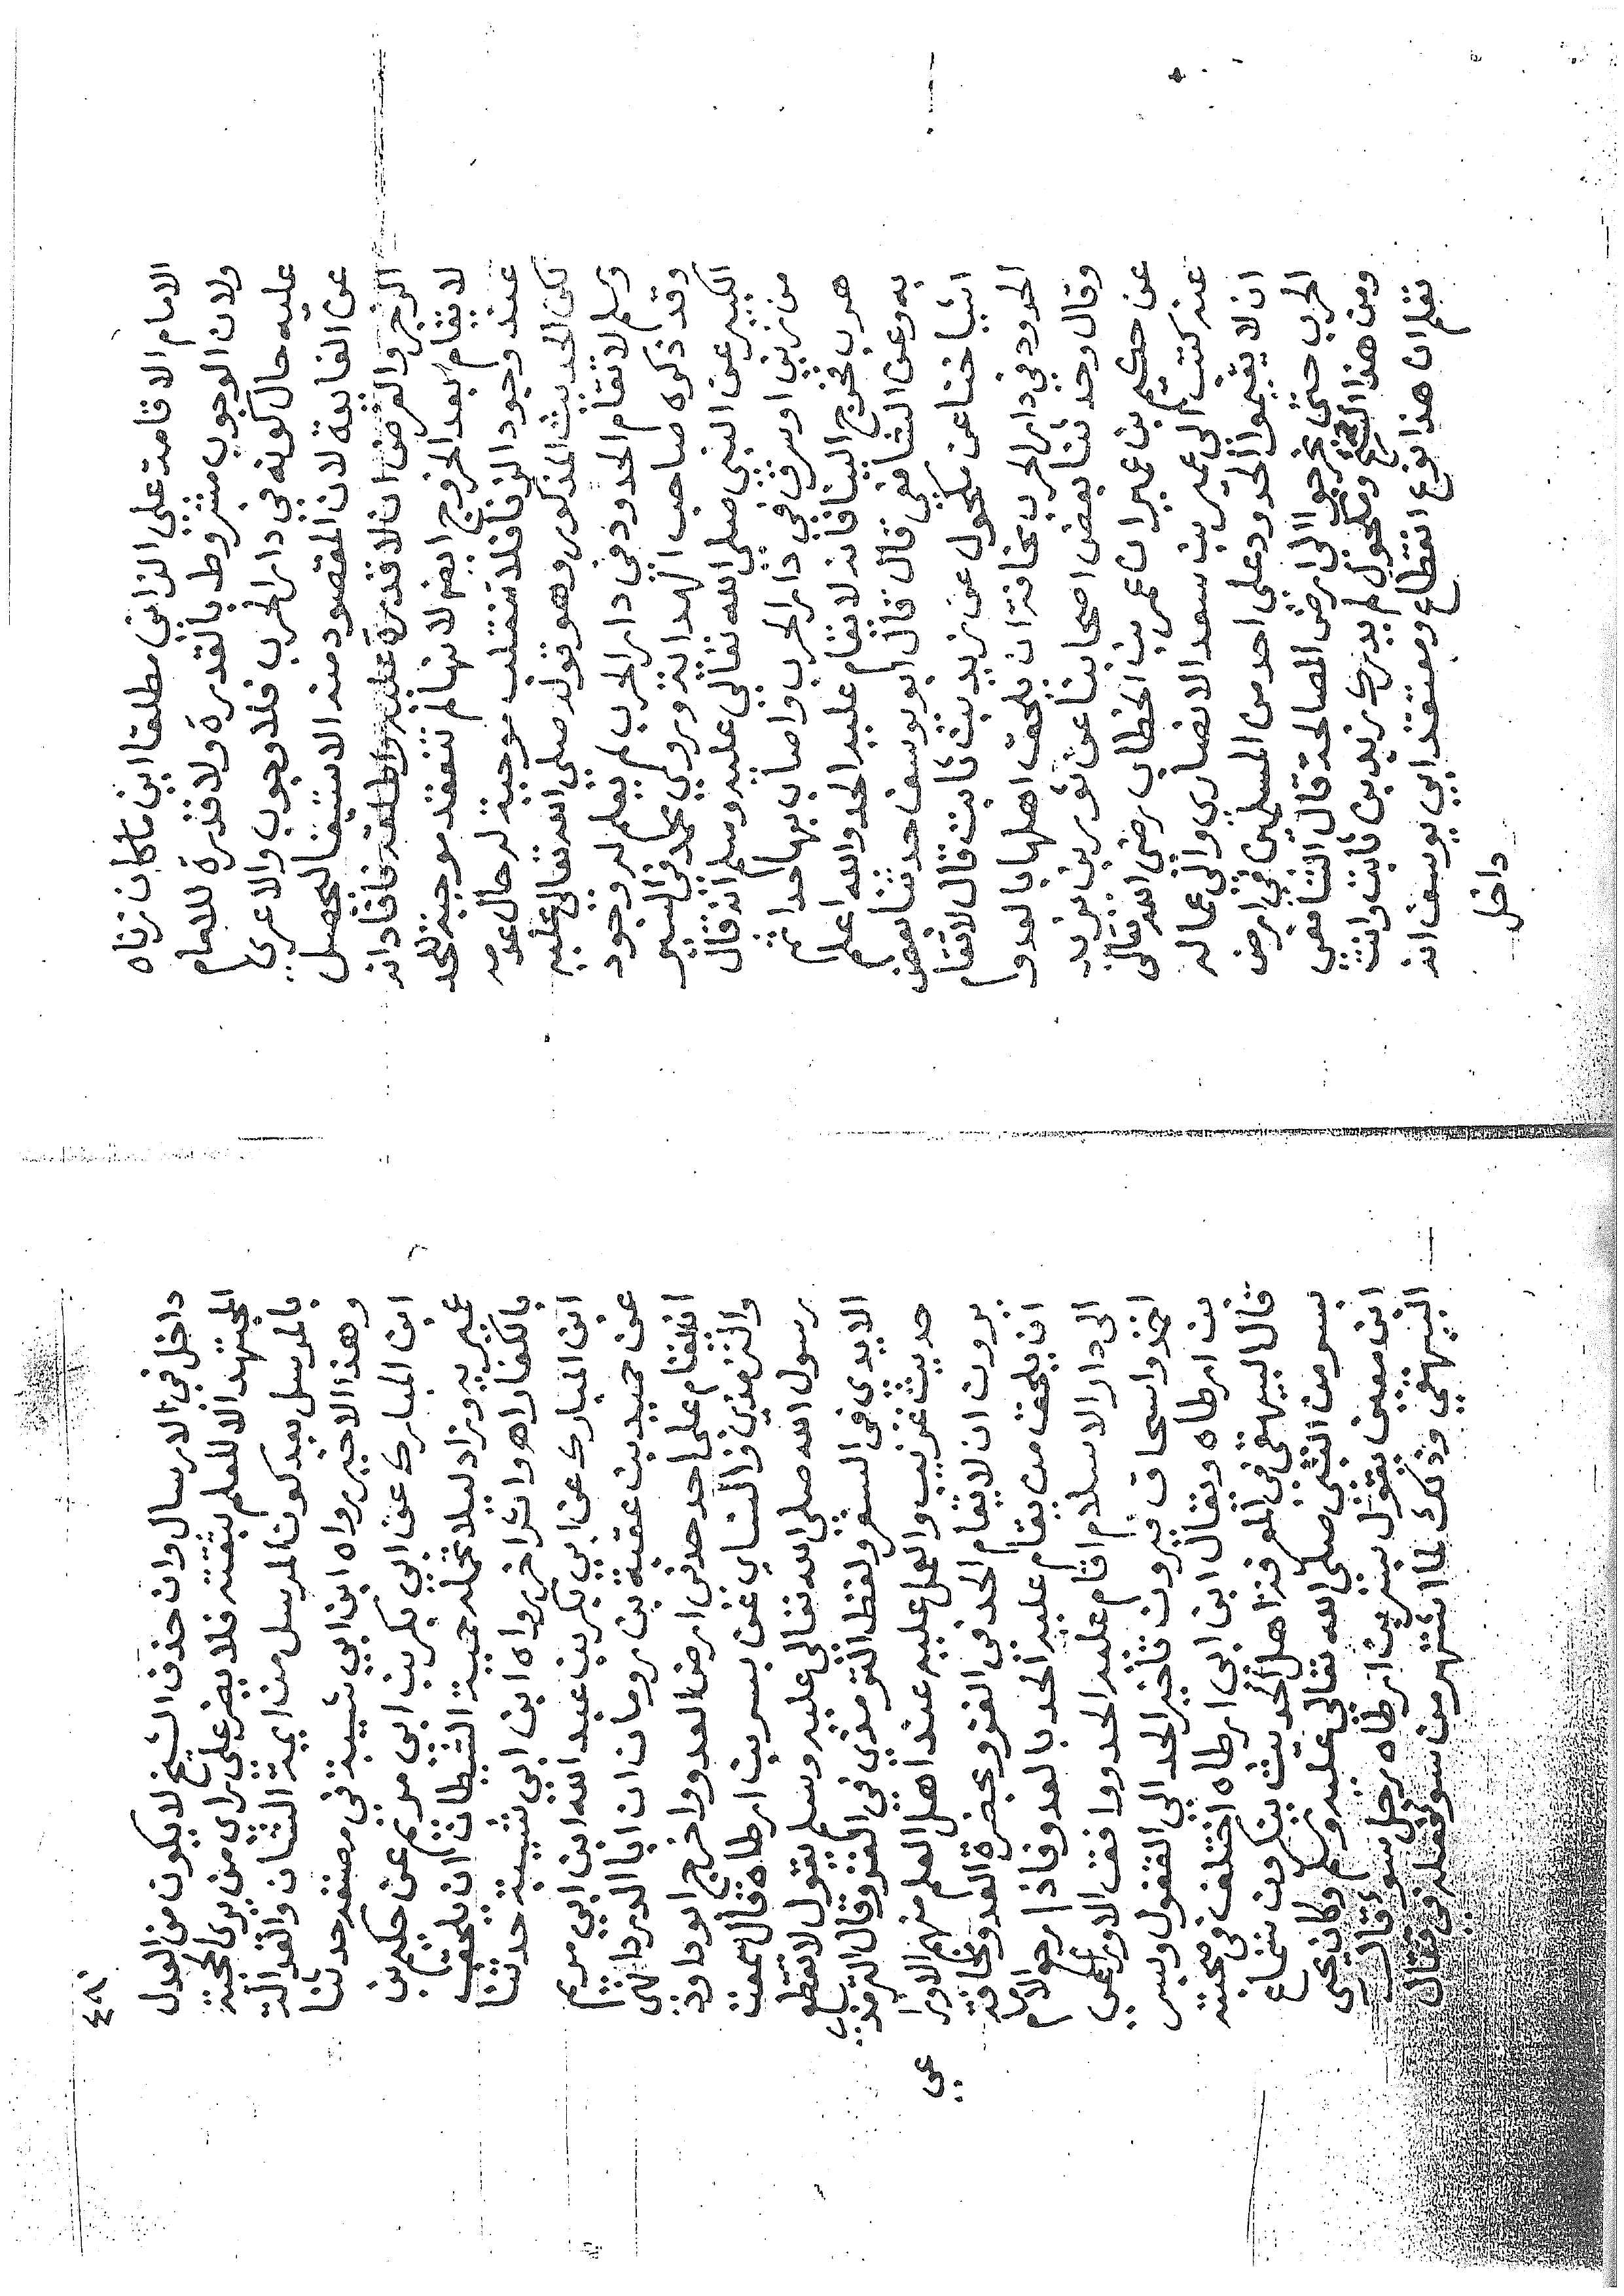 الامام الاقامة على الزاني مطلقا اين ما كان زناه
ولان الوجوب مشروط بالقدرة ولا قدرة للامام
عليه حال كونه في دار الحرب فلا وجوب والا عرى
عن الفايدة لان المقصود منه الاستيفا ليحصل
الزجر والفرض ان لا قدرة عليه واطلقه فافاد انه
لا تقام بعد الخروج ايضا لانها لم تنعقد موجبة للحد
عند وجود الزنا فلا تنقلب موجبة له حال عدمه
لكن الحديث المذكور وهو قوله صلى الله تعالى عليه
وسلم لا تقام الحدود في دار الحرب لم يعلم له وجود
وقد ذكره صاحب الهداية وروى محمد في السير
الكبير عن النبي صلى الله تعالى عليه وسلم انه قال
من زنى او سرق في دار الحرب واصاب بها حدا ثم
هرب فخرج الينا فانه لا تقام عليه الحد والله اعلم
به وعن الشافعي قال قال ابو يوسف حدثنا بعض
اشياخنا عن مكحول عن زيد بن ثابت قال لا تقام
الحدود في دار الحرب مخافة ان يلحق اهلها بالعدو
وقال وحدثنا بعض اصحابنا عن ثور بن يزيد
عن حكيم بن عمير ان عمر بن الخطاب رضي الله تعالى
عنه كتب الى عمير بن سعد الانصاري والى عماله
ان لا يقيموا الحدود على احد من المسلمين في ارض
الحرب حتى يخرجوا الى ارض المصالحة قال الشافعي
ومن هذا الشيخ ومكحول لم يدرك زيد بن ثابت وانت
تعلم ان هذا نوع انقطاع ومعتقد ابي يوسف انه
داخل
٤٨
داخل في الارسال وان حذف الشيخ لا يكون من العدل
المجتهد الا للعلم بثقته فلا يضر على راي من يرى الحجة
بالمرسل بعد كون المرسل من ايمة الشان والعدالة
وهذا الاخير رواه ابن ابي شيبة في مصنفه حدثنا
ابن المبارك عن ابي بكر بن ابي مريم عن حكيم بن
عمير به وزاد ليلا تحمله حمية الشيطان ان يلحق
بالكفار اهو اثر اخر رواه ابن ابي شيبة حدثنا
ابن المبارك عن ابي بكر بن عبد الله ابن ابي مريم
عن حميد بن عقبة بن رومان ان ابا الدرداء نهى
ان يقام على احد حد في ارض العدو واخرج ابو داود
والترمذي والنساي عن بسر بن ارطاة قال سمعت
رسول الله صلى الله تعالى عليه وسلم يقول لا تقطع
الايدي في السفر ولفظ الترمذي في الغزو وقال الترمذي
حديث غريب والعمل عليه عند اهل العلم منهم الاوزا
عي
يرون ان لا يقام الحد في الغزو بحضرة العدو مخافة
ان يلحق من يقام عليه الحد بالعدو فاذا رجع الامام
الى دار الاسلام اقام عليه الحد ووافق الاوزاعي
احمد واسحاق فيرون تاخير الحد الى القفول وبسر
بن ارطاه ويقال ابن ابي ارطاه اختلف في صحبته
قال البيهقي في المعرفة اهل الحديث ينكرون سماع
بسر من النبي صلى الله تعالى عليه وسلم وكان يحيى
ابن معين يقول بسر بن ارطاه رجل سو قال
البيهقي وذلك لما اشتهر من سو فعله في قتال